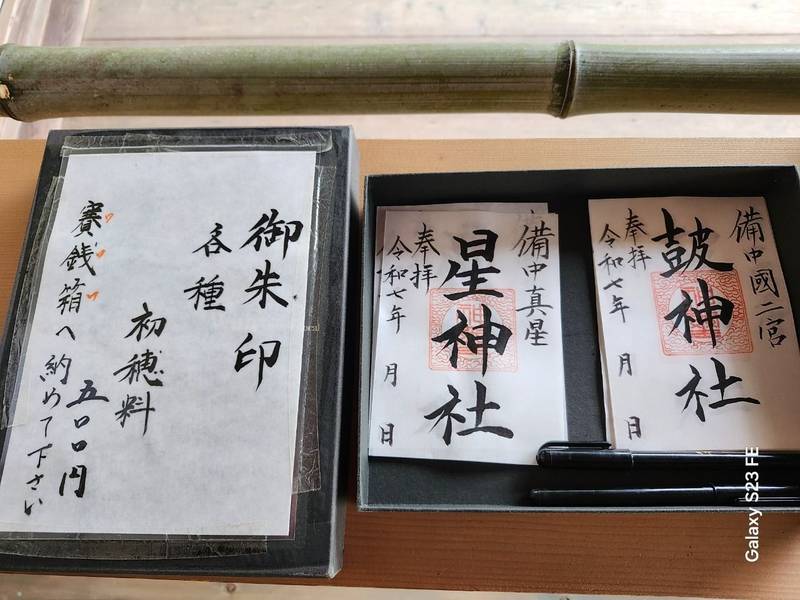 御朱印
各種
初穂料
五〇〇円
賽銭箱へ納めて下さい
備中真星
星神社
奉拝
令和七年 月 日
備中國二宮
鼓神社
奉拝
令和七年 月 日
Galaxy S23 FE